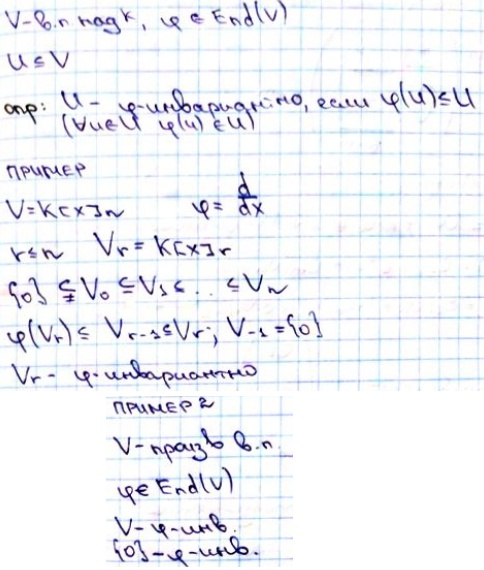 V-в.п над K, φ ∈ End(V)
U ≤ V
опр: U - φ-инвариантно, если φ(U) ≤ U
(∀u∈U φ(u) ∈ U)
ПРИМЕР
V = K[x]n φ = d/dx
r ≤ n Vr = K[x]r
{0} ⊊ V0 ⊆ V1 ≤ ... ≤ Vn
φ(Vr) ≤ Vr-1 ≤ Vr; V-1 = {0}
Vr - φ-инвариантно
ПРИМЕР 2
V - произв в.п.
φ ∈ End(V)
V - φ-инв.
{0} - φ-инв.